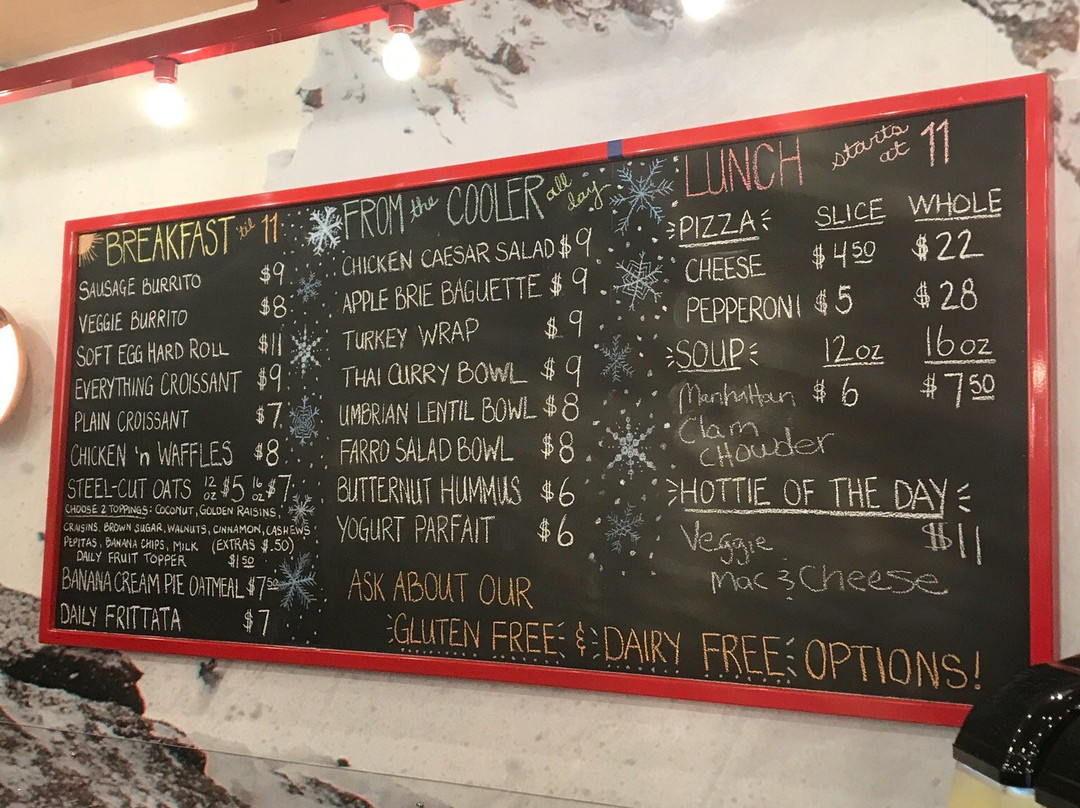 BREAKFAST 'til 11
SAUSAGE BURRITO $9
VEGGIE BURRITO $8
SOFT EGG HARD ROLL $11
EVERYTHING CROISSANT $9
PLAIN CROISSANT $7
CHICKEN 'n WAFFLES $8
STEEL-CUT OATS 12 oz $5 16 oz $7
CHOOSE 2 TOPPINGS: COCONUT, GOLDEN RAISINS,
CRAISINS, BROWN SUGAR, WALNUTS, CINNAMON, CASHEWS
PEPITAS, BANANA CHIPS, MILK (EXTRAS $.50)
DAILY FRUIT TOPPER $1.50
BANANA CREAM PIE OATMEAL $7.50
DAILY FRITTATA $7
FROM the COOLER all day
CHICKEN CAESAR SALAD $9
APPLE BRIE BAGUETTE $9
TURKEY WRAP $9
THAI CURRY BOWL $9
UMBRIAN LENTIL BOWL $8
FARRO SALAD BOWL $8
BUTTERNUT HUMMUS $6
YOGURT PARFAIT $6
LUNCH starts at 11
PIZZA SLICE WHOLE
CHEESE $4.50 $22
PEPPERONI $5 $28
SOUP 12 oz 16 oz
Manhattan $6 $7.50
Clam
CHowder
HOTTIE OF THE DAY
Veggie $11
Mac & Cheese
ASK ABOUT OUR
GLUTEN FREE & DAIRY FREE OPTIONS!